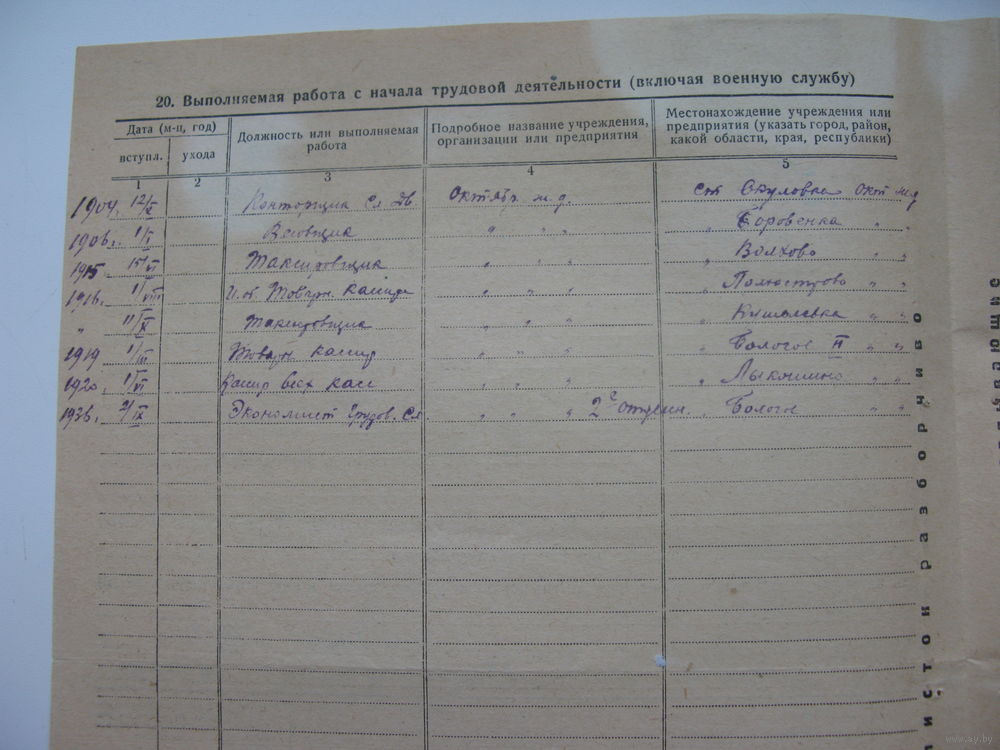 20. Выполняемая работа с начала трудовой деятельности (включая военную службу)
Дата (м-ц, год)
вступл. ухода
Должность или выполняемая
работа
Подробное название учреждения,
организации или предприятия
Местонахождение учреждения или
предприятия (указать город, район,
какой области, края, республики)
1 2 3 4 5
1904. 12/X Конторщик Сл. Дв. Октябр. ж.д. ст. Окуловка Окт ж.д
1906. 1/I Весовщик " " " " Боровенка " "
1915 15/VI Таксировщик " " " " Волхово " "
1916. 1/VIII Товарн. кассир " " " " Полюстрово " "
" 11/IX Таксировщик " " " " Кушелевка " "
1919 1/III Товарн. кассир " " " " Бологое II " "
1920. 1/VI Кассир всех касс " " " " Лыкошино " "
1936. IX Экономист Грузов. Сл " " " 2е отделен. " Бологое " "
листок разборчиво
www.ay.by